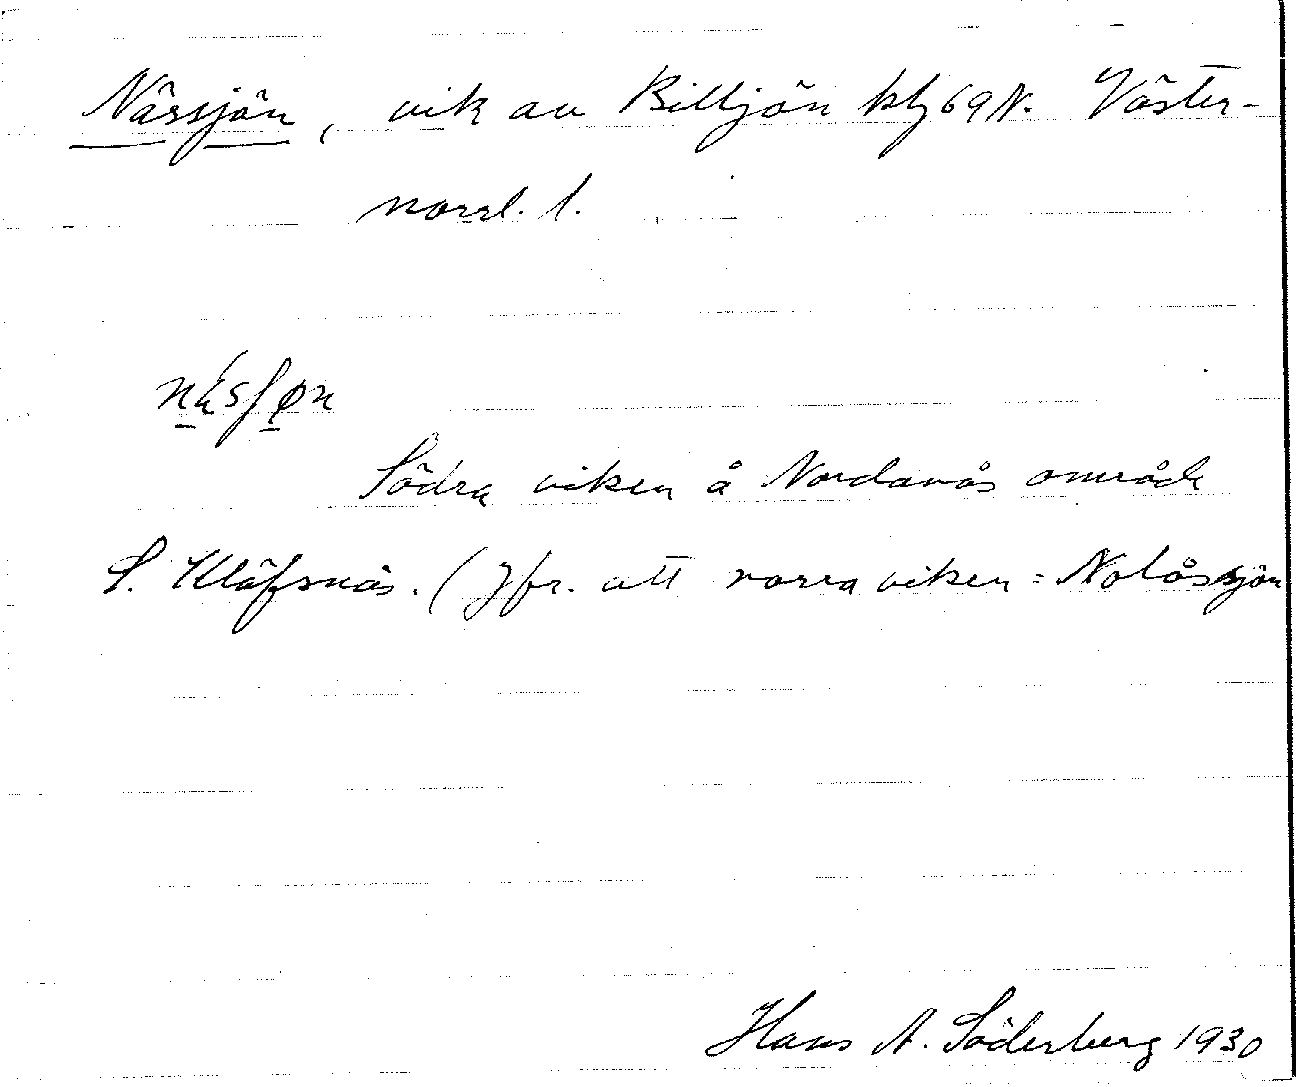 Nässjön, vik av Billsjön kbl 69 N. Väster-
norrl. l.
Södra viken å Nordanås område
S. Kläfsnäs. (Jfr. att norra viken = Nolåssjön
Hans A. Söderberg 1930